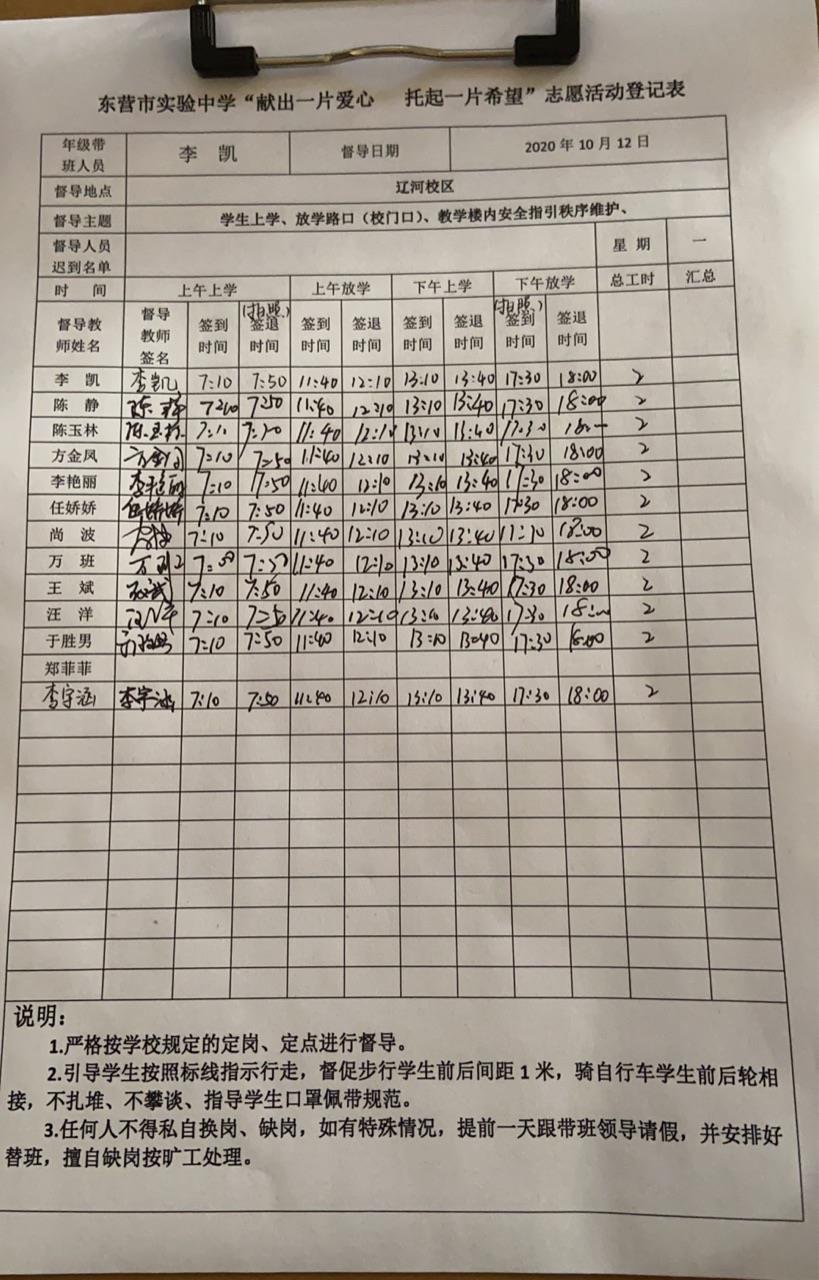 东营市实验中学“献出一片爱心 托起一片希望”志愿活动登记表
年级带班人员 李 凯 督导日期 2020 年 10 月 12 日
督导地点 辽河校区
督导主题 学生上学、放学路口（校门口）、教学楼内安全指引秩序维护、
督导人员迟到名单 星 期 一
时 间 上午上学 上午放学 下午上学 下午放学 总工时 汇总
督导教师姓名 督导教师签名 签到时间 (拍照)签退时间 签到时间 签退时间 签到时间 签退时间 (拍照)签到时间 签退时间
李 凯 李凯 7:10 7:50 11:40 12:10 13:10 13:40 17:30 18:00 2
陈 静 陈静 7:10 7:50 11:40 12:10 13:10 13:40 17:30 18:00 2
陈玉林 陈玉林 7:10 11:40 12:10 13:10 13:40 17:30 2
方金凤 方金凤 7:10 7:50 11:40 12:10 13:10 13:40 17:30 18:00 2
李艳丽 李艳丽 7:10 7:50 11:40 12:10 13:10 13:40 17:30 18:00 2
任娇娇 任娇娇 7:10 7:50 11:40 12:10 13:10 13:40 17:30 18:00 2
尚 波 7:10 7:50 11:40 12:10 13:10 13:40 18:00 2
万 班 7:50 11:40 12:10 13:10 13:40 17:30 18:00 2
王 斌 王斌 7:10 7:50 11:40 12:10 13:10 13:40 17:30 18:00 2
汪 洋 汪洋 7:10 7:50 11:40 12:10 13:10 13:40 17:30 2
于胜男 于胜男 7:10 7:50 11:40 12:10 13:10 13:40 17:30 18:00 2
郑菲菲
李宇涵 李宇涵 7:10 7:50 11:40 12:10 13:10 13:40 17:30 18:00 2
说明：
1.严格按学校规定的定岗、定点进行督导。
2.引导学生按照标线指示行走，督促步行学生前后间距 1 米，骑自行车学生前后轮相
接，不扎堆、不攀谈、指导学生口罩佩带规范。
3.任何人不得私自换岗、缺岗，如有特殊情况，提前一天跟带班领导请假，并安排好
替班，擅自缺岗按旷工处理。